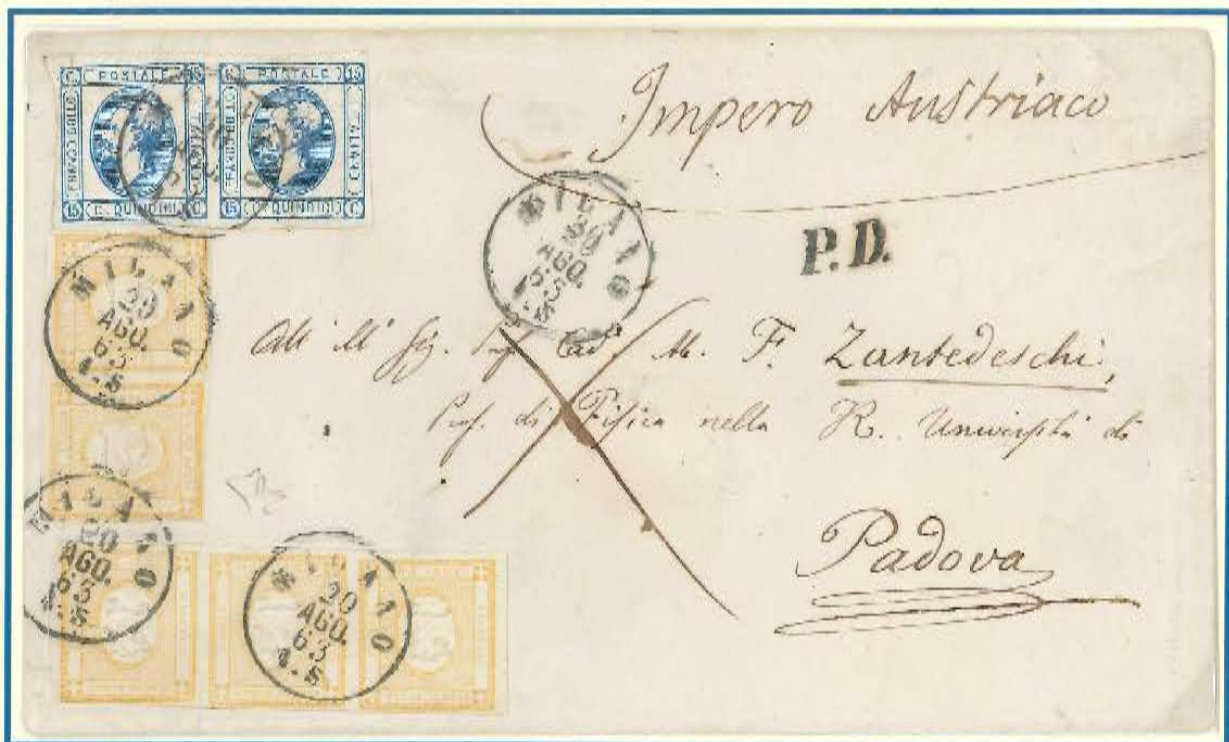 C. POSTALE 15
FRANCO BOLLO
15 C. QUINDICI C
POSTALE 15
FRANCO BOLLO
CENTMI.
15 C. QUINDICI C
Impero Austriaco
MILANO
20
AGO.
63
P.D.
MILANO
20
AGO.
63
All' Ill. Sig. Prof. Cav. Ab. F. Zantedeschi,
Prof. di Fisica nella R. Università di
Padova
MILANO
20
AGO.
63
MILANO
20
AGO.
63